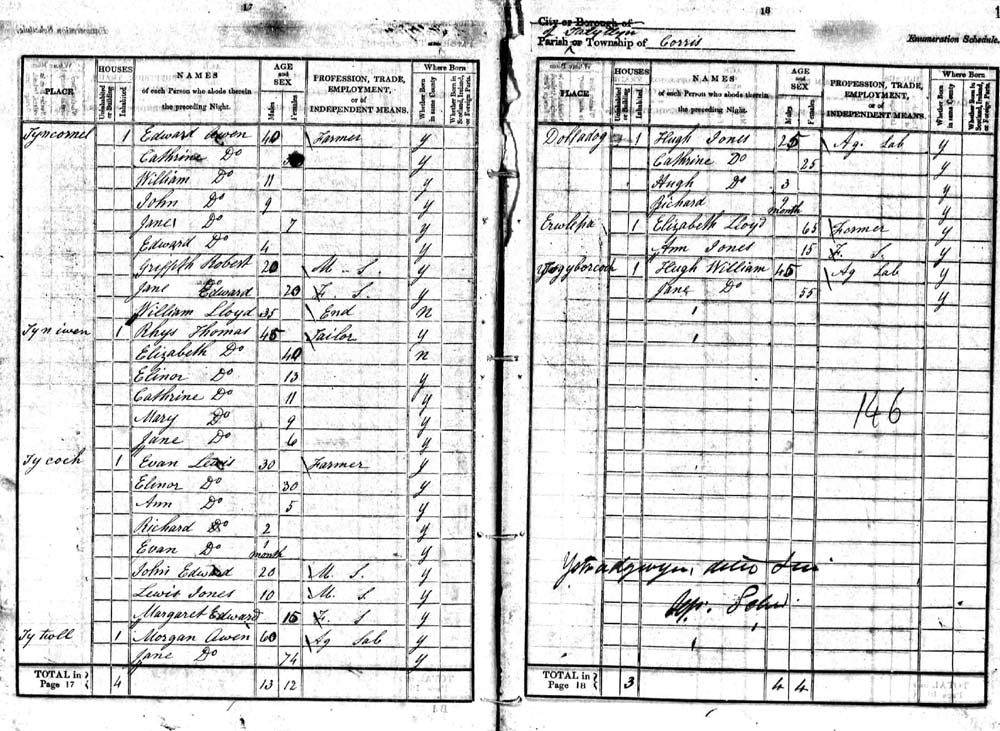 17
PLACE
HOUSES
Uninhabited or Building
Inhabited
NAMES
of each Person who abode therein
the preceding Night.
AGE and SEX
Males
Females
PROFESSION, TRADE,
EMPLOYMENT,
or of
INDEPENDENT MEANS.
Where Born
Whether Born in same County
Whether Born in Scotland, Ireland, or Foreign Parts.
Tyncornel 1 Edward Owen 40 Farmer y
Cathrine Do y
William Do 11 y
John Do 9 y
Jane Do 7 y
Edward Do 4 y
Griffith Robert 20 M. S. y
Jane Edward 20 F. S. y
William Lloyd 35 End n
Tyn iwen 1 Rhys Thomas 45 Tailor y
Elizabeth Do 40 n
Elinor Do 13 y
Cathrine Do 11 y
Mary Do 9 y
Jane Do 6 y
Ty coch 1 Evan Lewis 30 Farmer y
Elinor Do 30 y
Ann Do 5 y
Richard Do 2 y
Evan Do 1 month y
John Edward 20 M. S. y
Lewis Jones 10 M. S y
Margaret Edward 15 F. S y
Ty twll 1 Morgan Owen 60 Ag Lab y
Jane Do 74 y
TOTAL in Page 17 4 13 12
18
1
City or Borough of
of Talyllyn
Parish or Township of Corris
Enumeration Schedule.
PLACE
HOUSES
Uninhabited or Building
Inhabited
NAMES
of each Person who abode therein
the preceding Night.
AGE and SEX
Males
Females
PROFESSION, TRADE,
EMPLOYMENT,
or of
INDEPENDENT MEANS.
Where Born
Whether Born in same County
Whether Born in Scotland, Ireland, or Foreign Parts.
1 Hugh Jones 25 Ag. Lab y
Cathrine Do 25 y
Hugh Do 3 y
Richard 9 month y
1 Elizabeth Lloyd 65 Farmer y
Ann Jones 15 F. S. y
1 Hugh William 45 Ag Lab y
Jane Do 55 y
146
TOTAL in Page 18 3 4 4